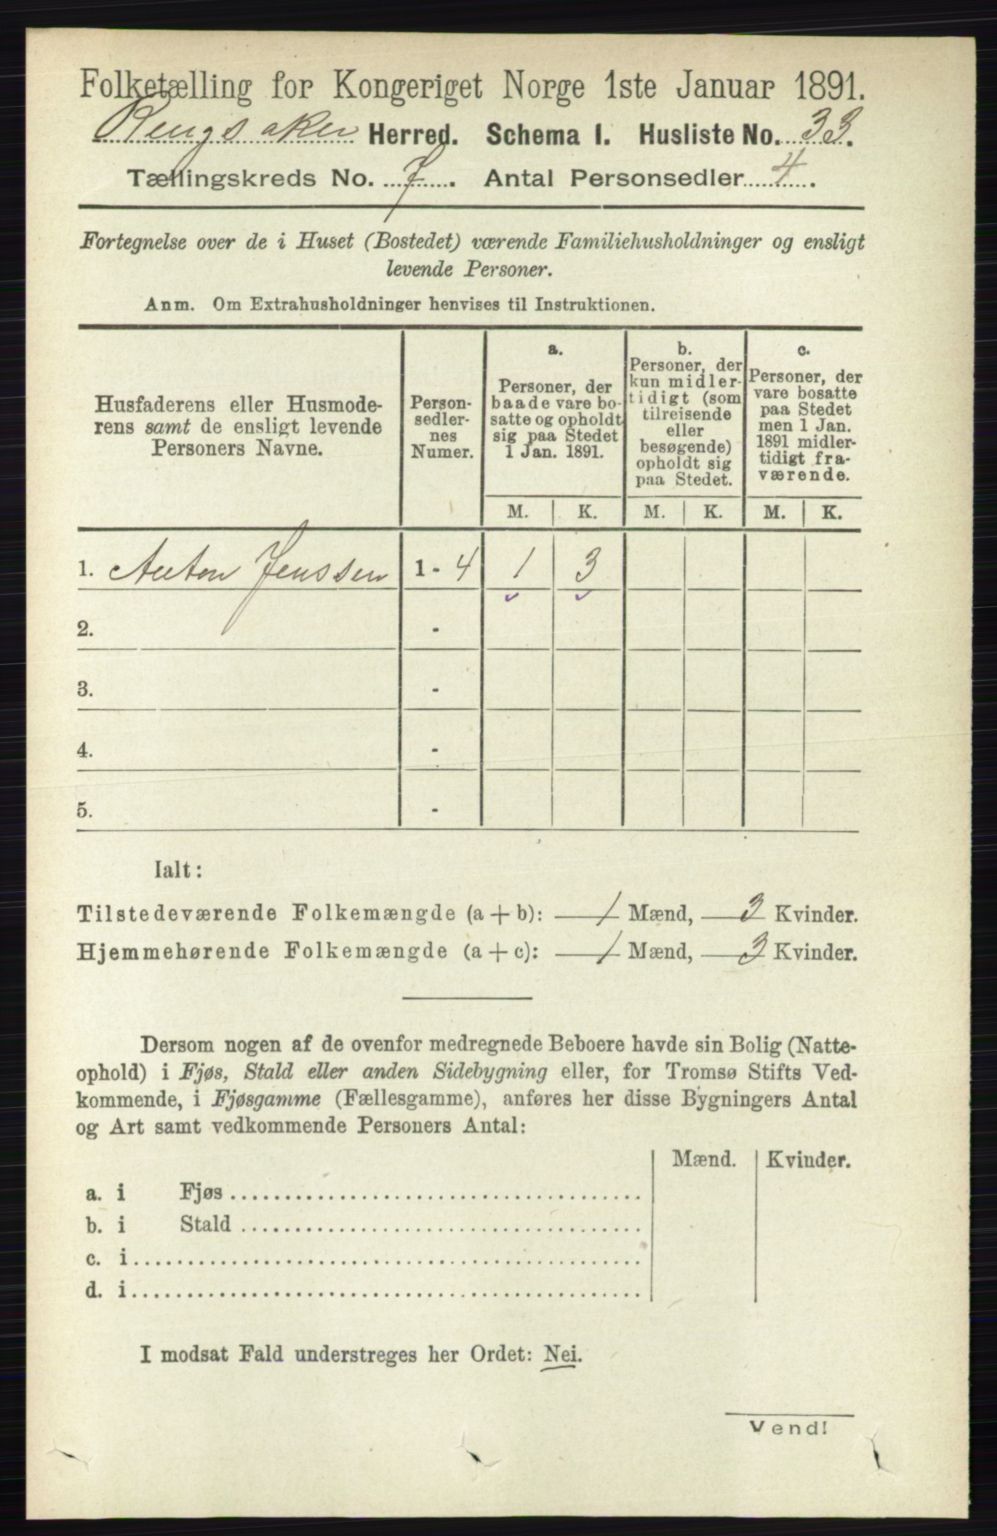 Folketælling for Kongeriget Norge 1ste Januar 1891.
Ringsaker Herred. Schema I. Husliste No. 33.
Tællingskreds No. 7. Antal Personsedler 4.
Fortegnelse over de i Huset (Bostedet) værende Familiehusholdninger og ensligt
levende Personer.
Anm. Om Extrahusholdninger henvises til Instruktionen.
Husfaderens eller Husmode-
rens samt de ensligt levende
Personers Navne.
Person-
sedler-
nes
Numer.
a.
Personer, der
baade vare bo-
satte og opholdt
sig paa Stedet
1 Jan. 1891.
b.
Personer, der
kun midler-
tidigt (som
tilreisende
eller
besøgende)
opholdt sig
paa Stedet.
c.
Personer, der
vare bosatte
paa Stedet
men 1 Jan.
1891 midler-
tidigt fra-
værende.
M. K. M. K. M. K.
1. Anton Jenssen 1 - 4 1 3
2. -
3. -
4. -
5. -
Ialt:
Tilstedeværende Folkemængde (a + b): 1 Mænd, 3 Kvinder.
Hjemmehørende Folkemængde (a + c): 1 Mænd, 3 Kvinder.
Dersom nogen af de ovenfor medregnede Beboere havde sin Bolig (Natte-
ophold) i Fjøs, Stald eller anden Sidebygning eller, for Tromsø Stifts Ved-
kommende, i Fjøsgamme (Fællesgamme), anføres her disse Bygningers Antal
og Art samt vedkommende Personers Antal:
Mænd. Kvinder.
a. i Fjøs
b. i Stald
c. i
d. i
I modsat Fald understreges her Ordet: Nei.
Vend!